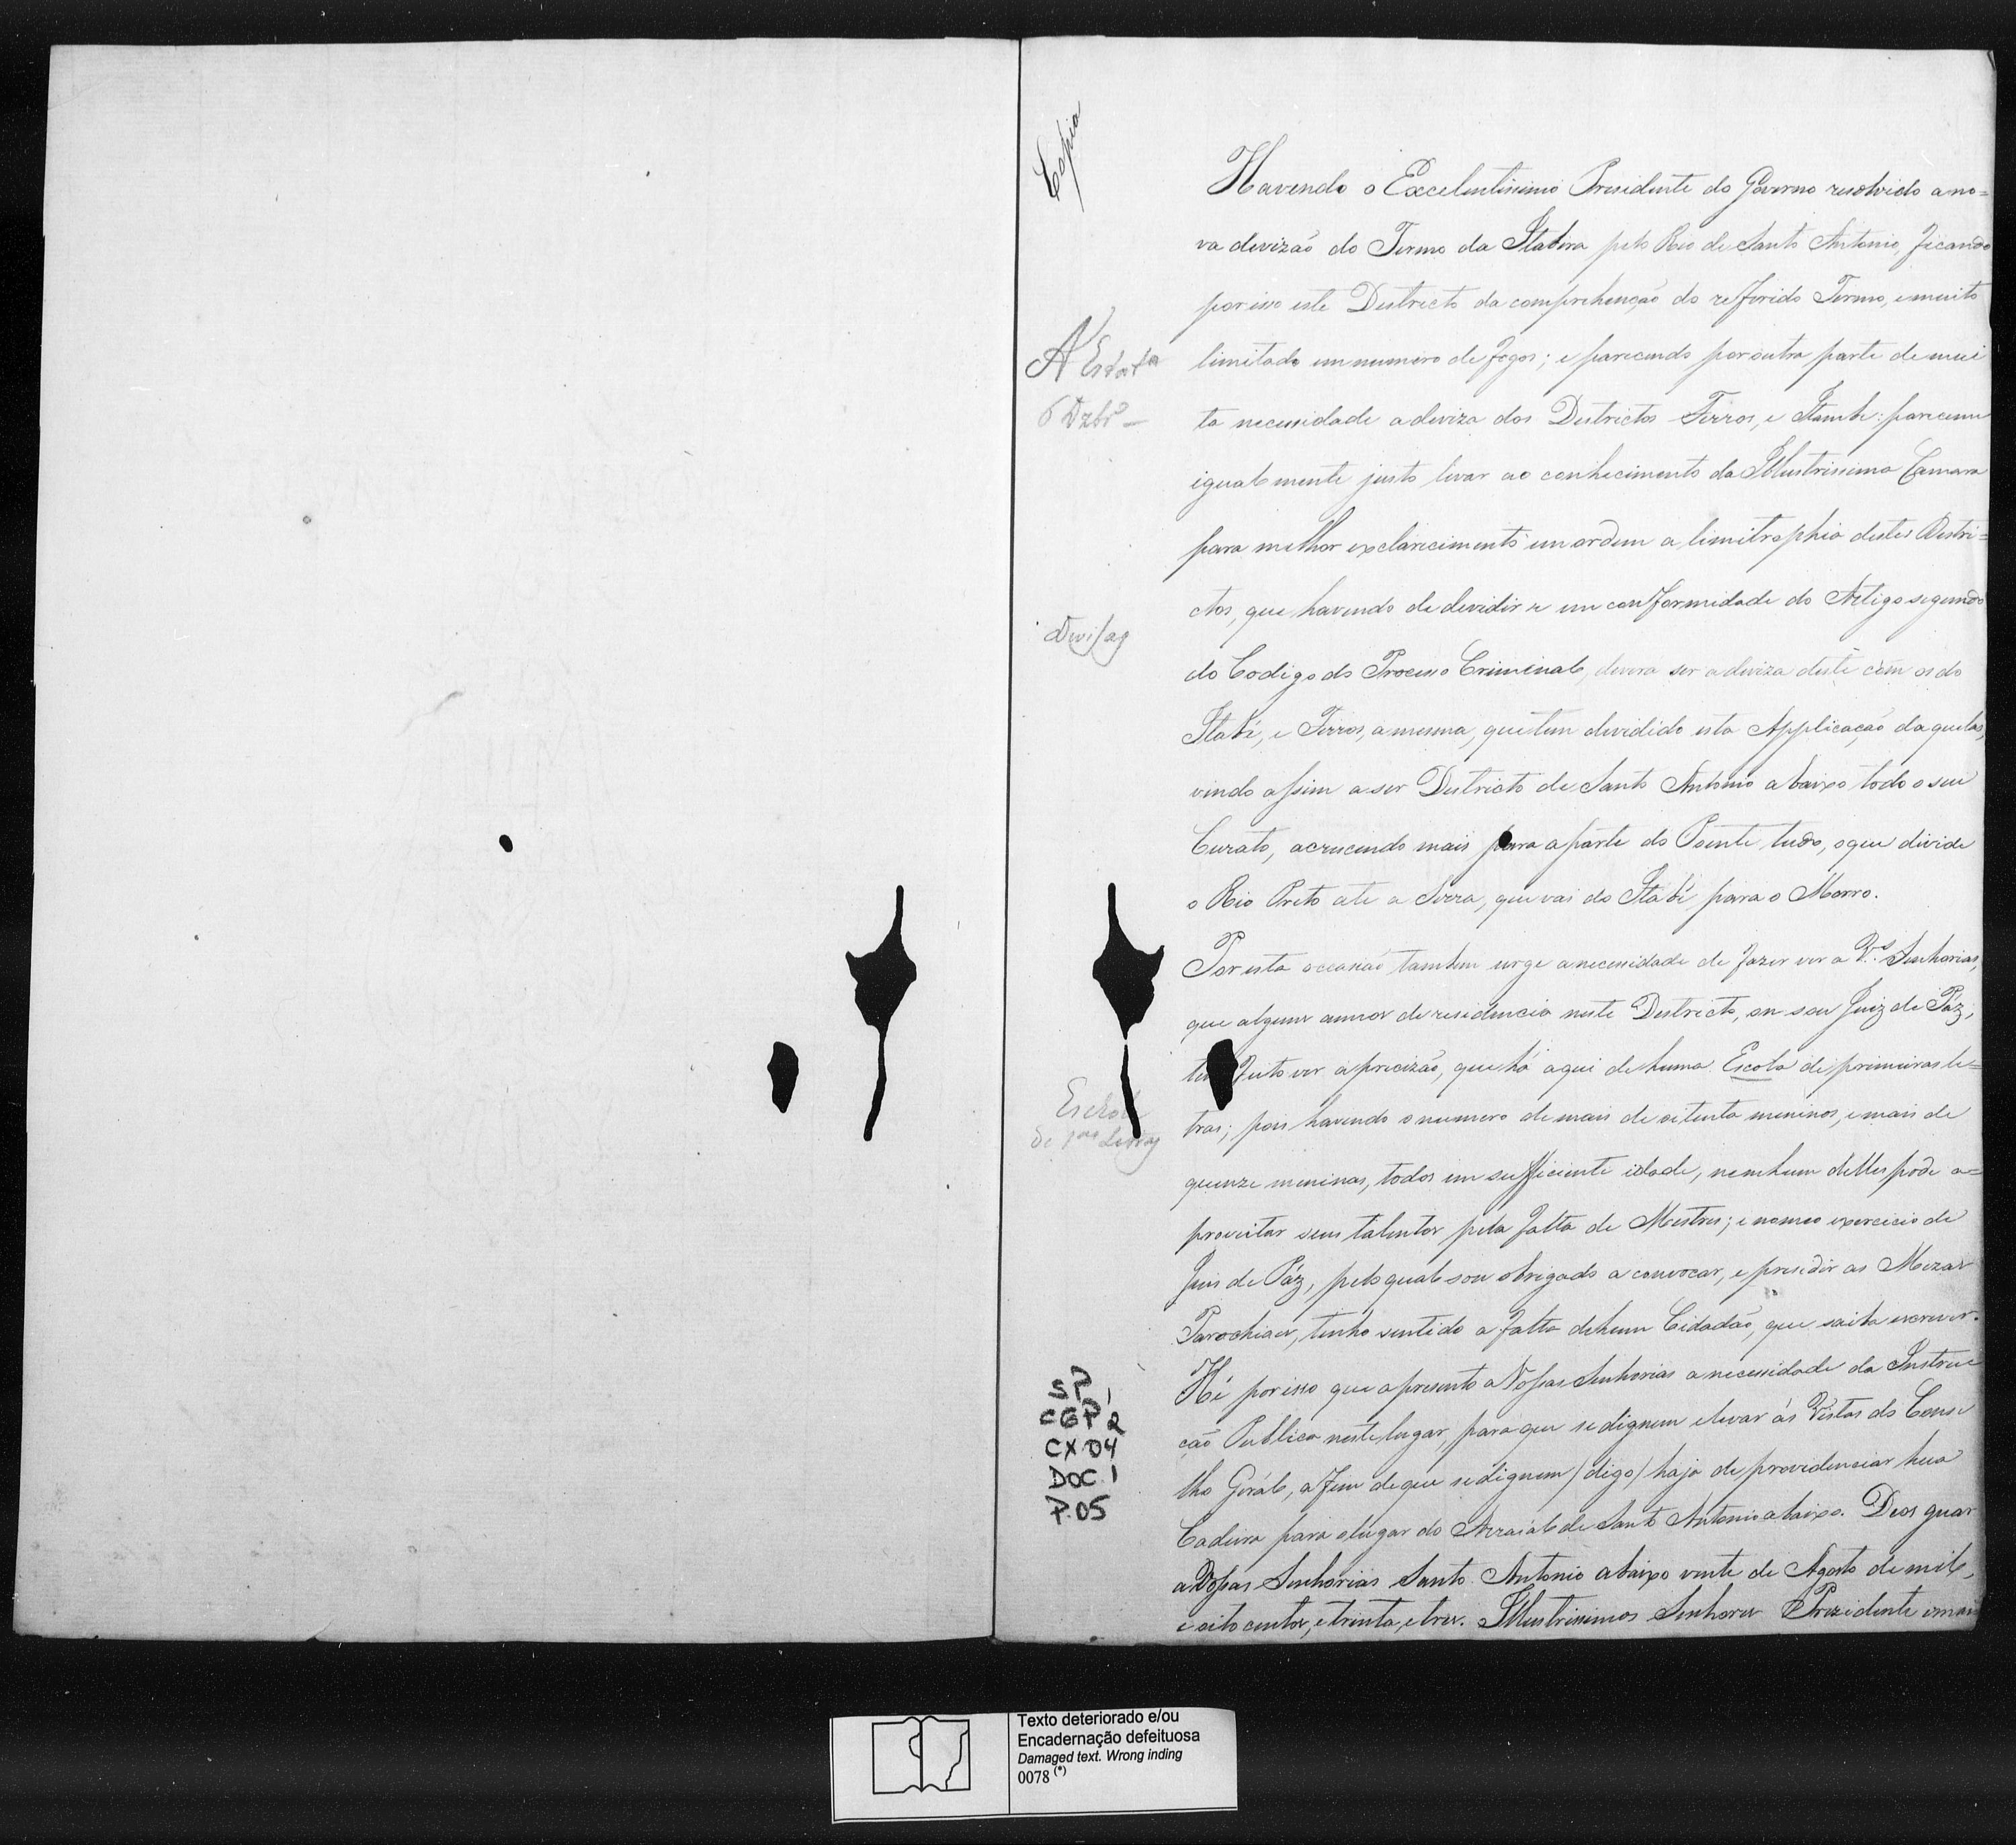 Copia
Havendo o Excelentissimo Presidente do Governo resolvido a no=
va devizaõ do Termo da Itabira pelo Rio de Santo Antonio, ficando
por isso este Destricto da comprehençaõ do refferido Termo, e muito
A' Estat.ª
limitado em numero de fogos; e parecendo por outra parte de mui
6 Dzbrº
ta necessidade a deviza dos Destrictos Ferros, e Itambe: pareceme
igualmente justo levar ao conhecimento da Illustrissima Camara
para melhor exclarecimento em ordem a limitrophia destes Destri=
ctos, que havendo de devidir se em conformidade do Artigo segundo
Divisaõ
do Codigo do Processo Criminal, devera ser a deviza deste com os do
Itabé, e Ferros, a mesma, que tem devidido esta Applicaçaõ daquelas,
vindo assim a ser Destricto de Santo Antonio abaixo todo o seu
Curato, acrescendo mais para a parte do Poente tudo, o que divide
o Rio Preto ate a Serra, que vai do Itabé para o Morro.
Por esta occasiaõ tambem urge a necessidade de fazer ver a V.ªs Senhorias,
que alguns annos de residencia neste Destricto, em seu Juiz de Páz,
tem feito ver a precizaõ, que há aqui de huma Escola de primeiras le=
Escola
de 1.as Letras
tras; pois havendo o numero de mais de oitenta meninos, e mais de
quenze meninas, todos em sufficiente idade, nemhum delles pode a=
proveitar seus talentos pela falta de Mestres; e no meo exercicio de
Juis de Páz, pelo qual sou obrigado a convocar, e presedir as Mezas
Parochiaes, tenho sentido a falta de hum Cidadaõ, que saiba escrever.
Hé por isso que apresento a Vossas Senhorias a necessidade da Instruc
çaõ Publica neste lugar, para que se dignem elevar ás Vistas do Conse
lho Gerál, a fim de que se dignem / digo / haja de providenciar hua
Cadeira para o lugar do Arraial de Santo Antonio abaixo. Deos guar
a Vossas Senhorias Santo Antonio abaixo vinte de Agosto de mil,
e oito centos, e trinta, e tres. Illustrissimos Senhores Prezidente e mais
SP 1
CGP 2
CX 04
DOC. 1
P. 05
Texto deteriorado e/ou
Encadernação defeituosa
Damaged text. Wrong inding
0078 (*)